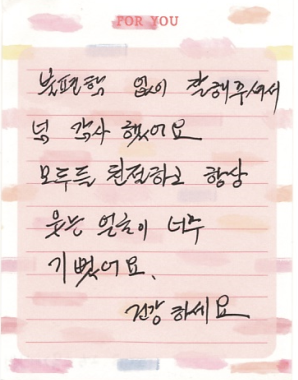 FOR YOU
불편함 없이 잘해주셔서
넘 감사 했어요
모두들 친절하고 항상
웃는 얼굴이 너무
기뻤어요.
건강 하세요